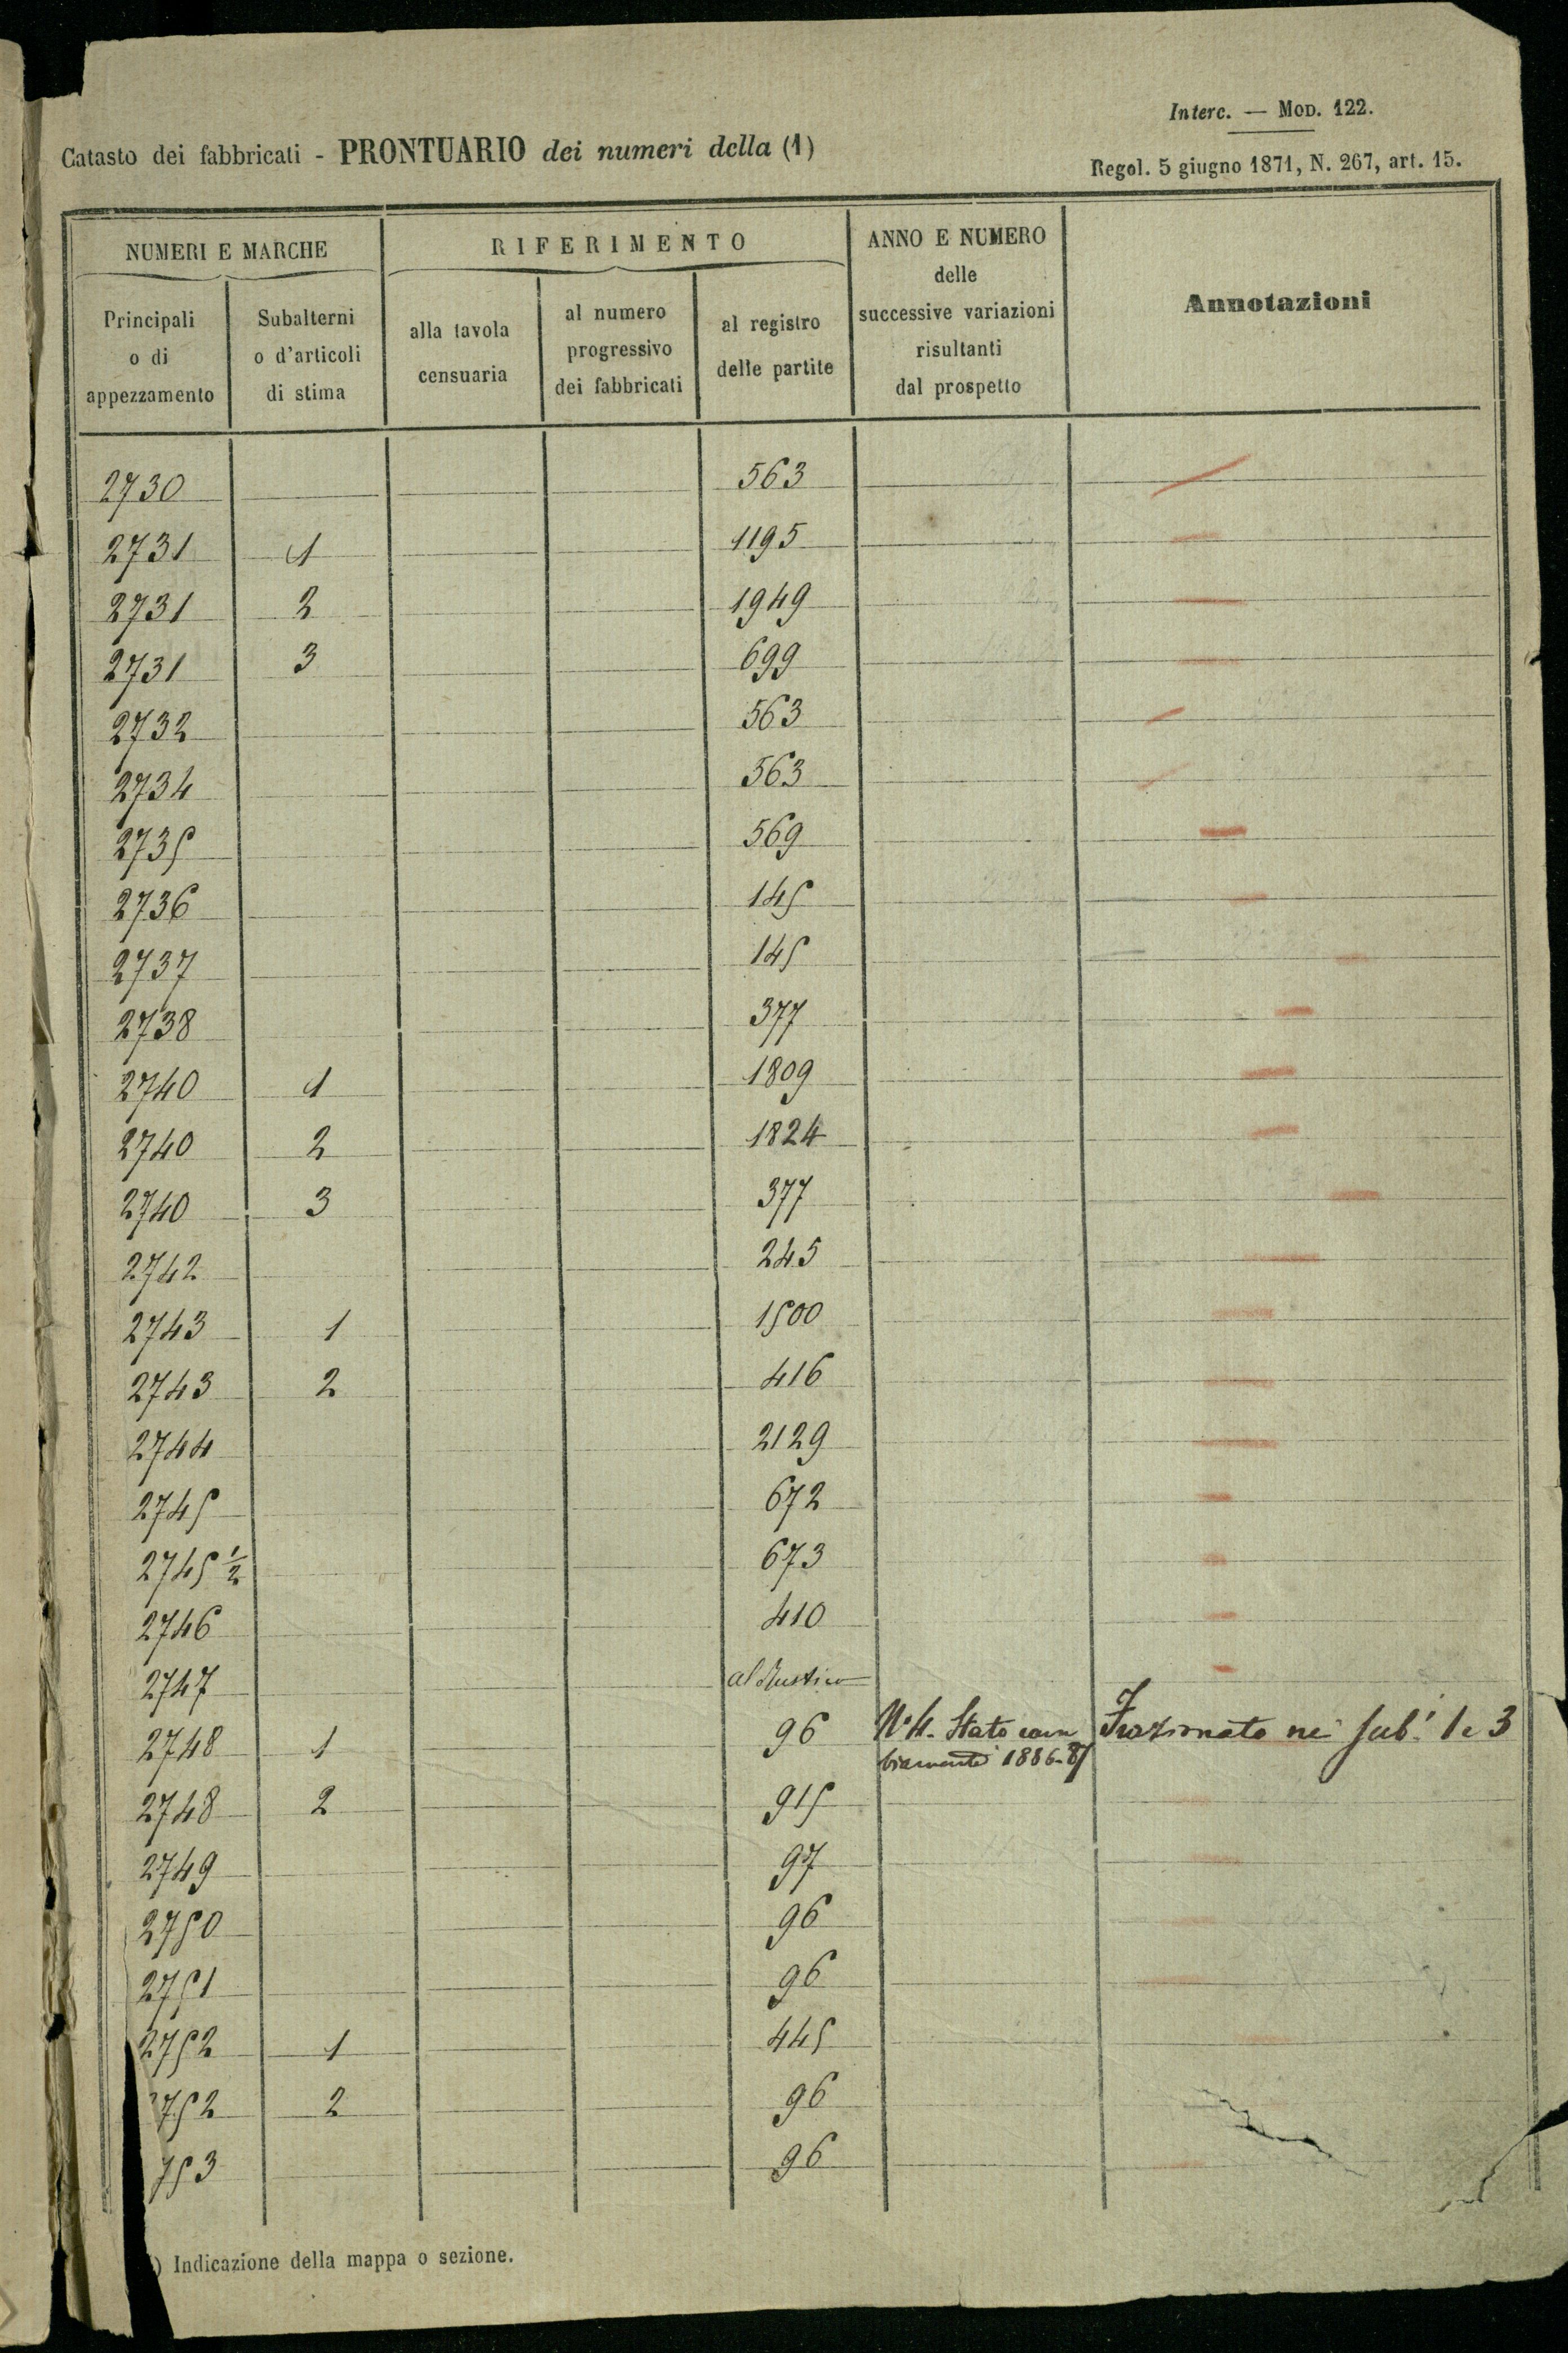 Interc. — Mod. 122.
Catasto dei fabbricati - PRONTUARIO dei numeri della (1)
Regol. 5 giugno 1871, N. 267, art. 15.
NUMERI E MARCHE
RIFERIMENTO
ANNO E NUMERO
delle
successive variazioni
risultanti
dal prospetto
Annotazioni
Principali
o di
appezzamento
Subalterni
o d'articoli
di stima
alla tavola
censuaria
al numero
progressivo
dei fabbricati
al registro
delle partite
2730 563
2731 1 1195
2731 2 1949
2731 3 699
2732 563
2734 563
2735 569
2736 145
2737 145
2738 377
2740 1 1809
2740 2 1824
2740 3 377
2742 245
2743 1 1500
2743 2 416
2744 2129
2745 672
2745 ½ 673
2746 410
2747 al Rustico
2748 1 96 N° 4. Stato cam Frazionato nei sub. 1 e 3
biamenti 1886-87
2748 2 915
2749 97
2750 96
2751 96
2752 1 445
752 2 96
753 96
) Indicazione della mappa o sezione.